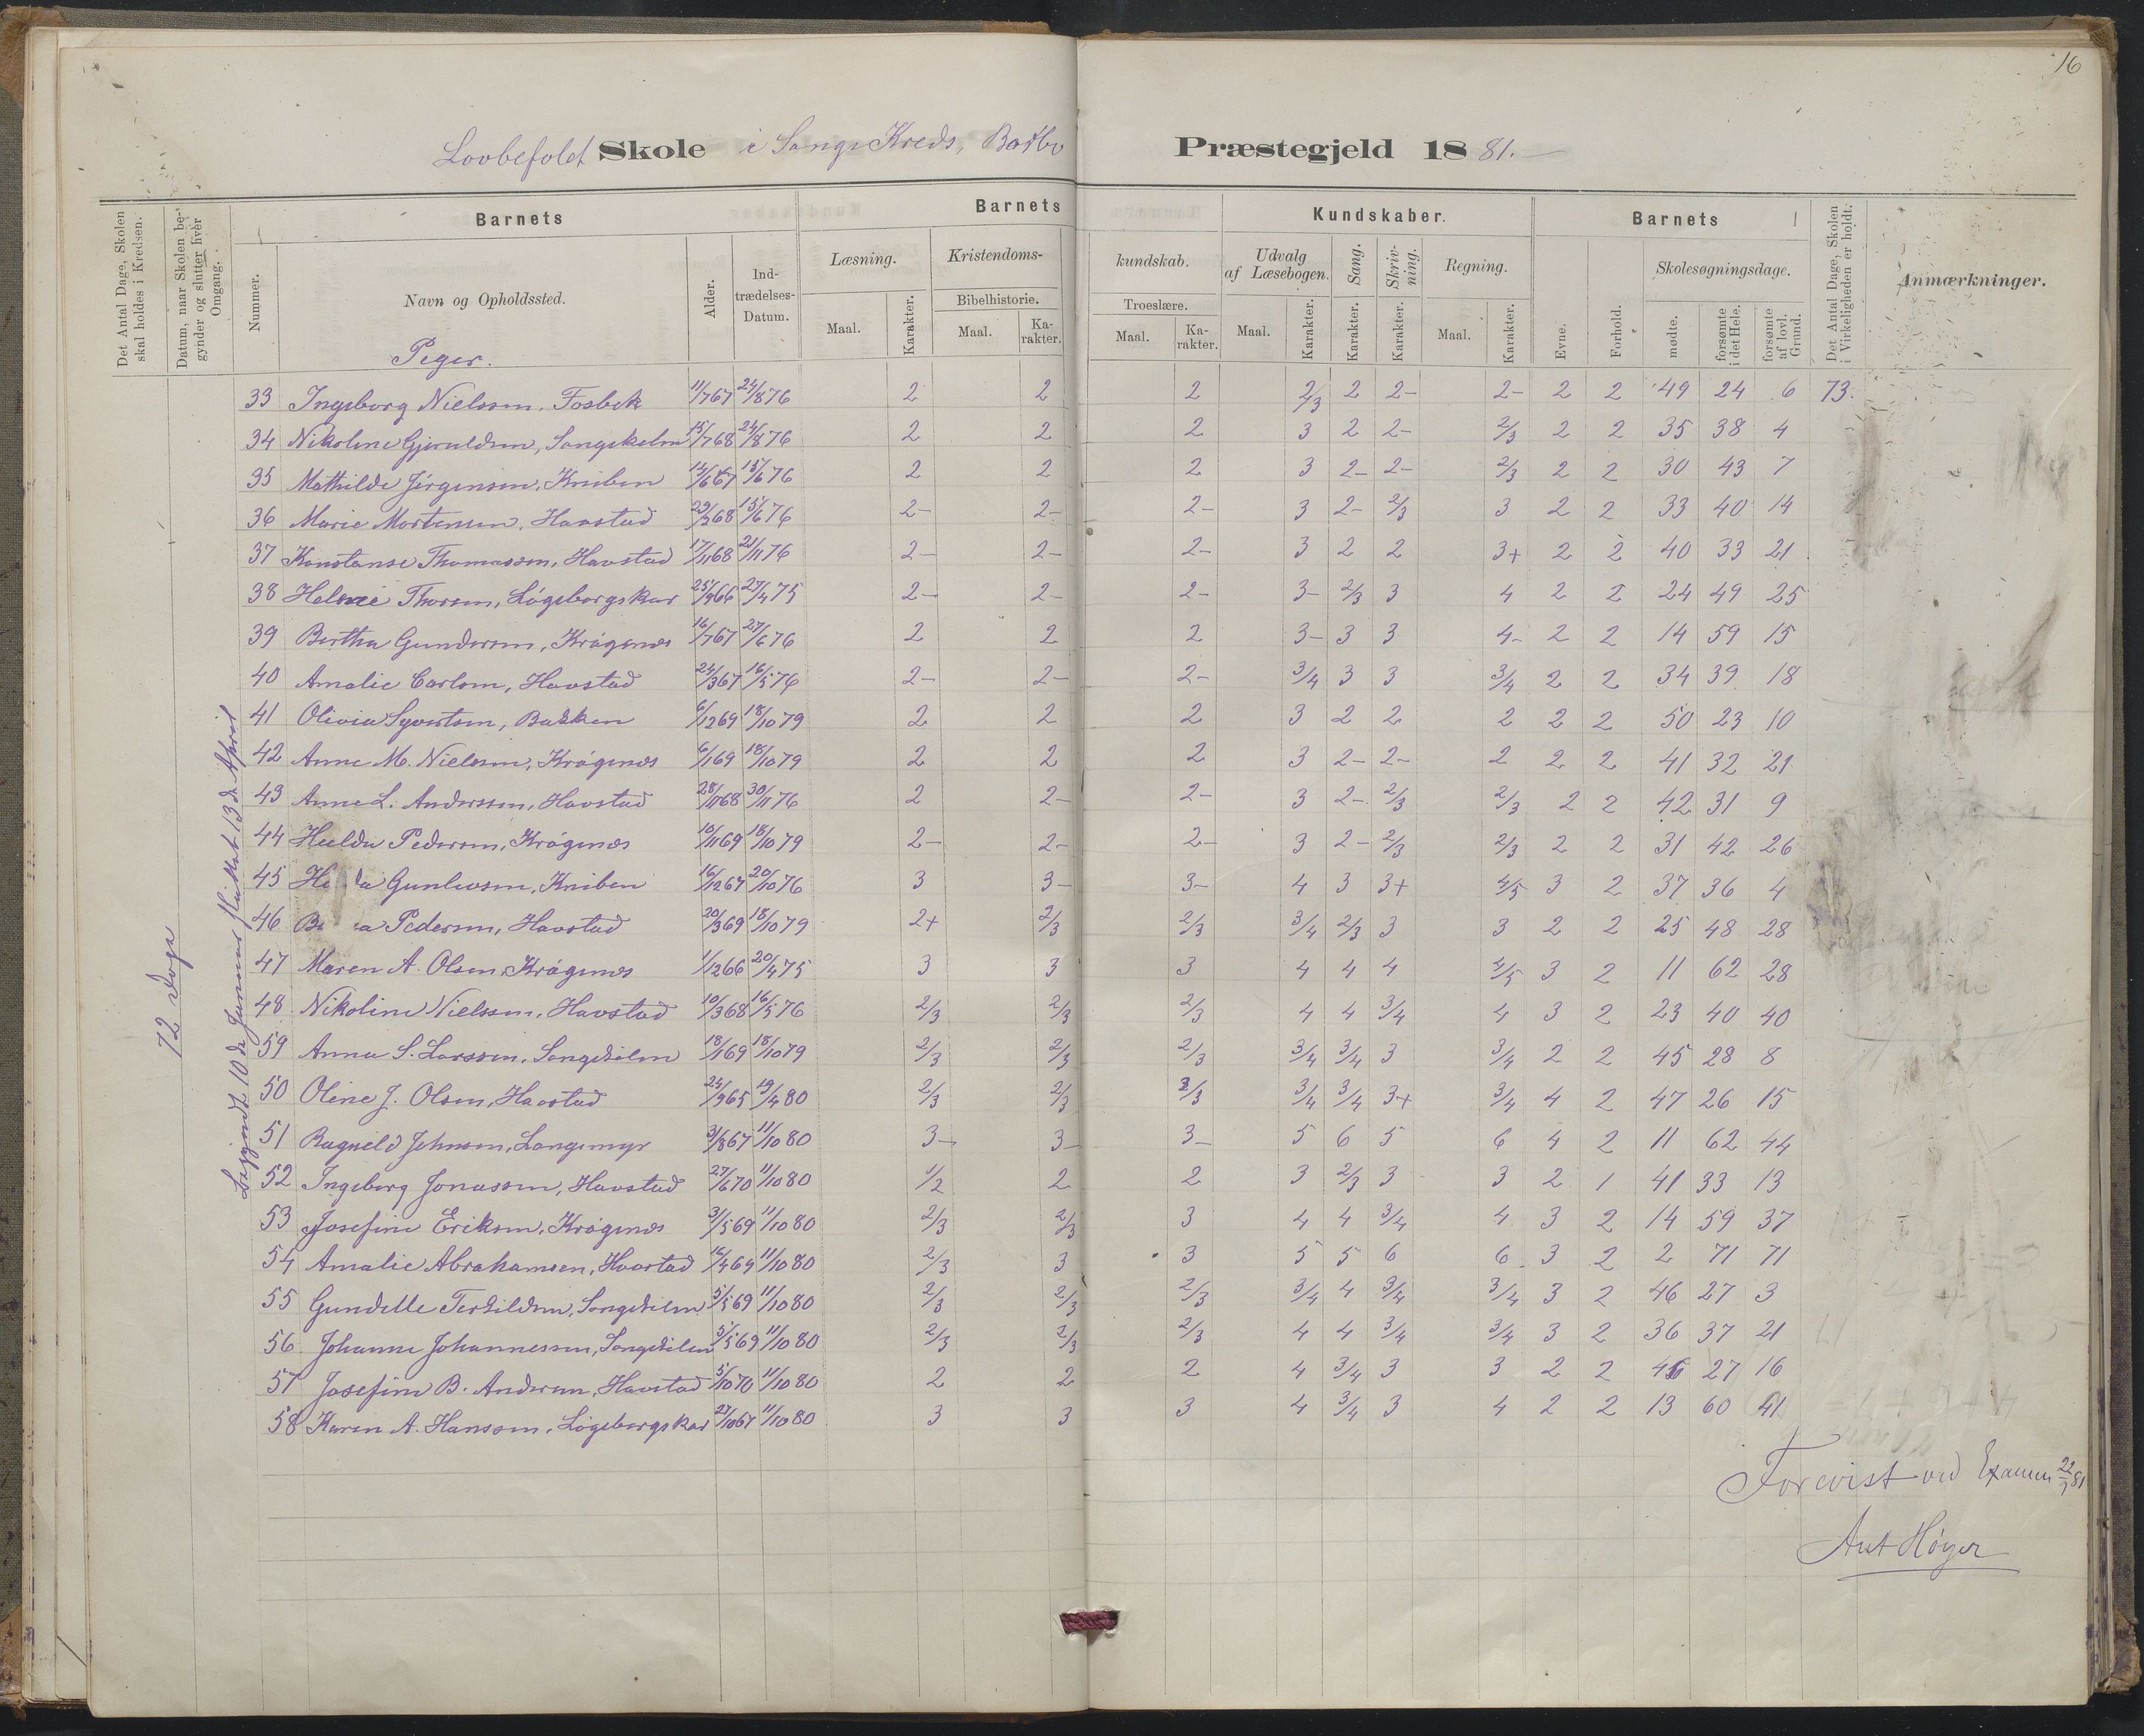 16
Lovbefolet Skole i Songe Kreds, Barbo Præstegjeld 1881.
Det Antal Dage, Skolen skal holdes i Kredsen.
Datum, naar Skolen begynder og slutter hver Omgang.
Barnets
Barnets Kundskaber.
Barnets
Det Antal Dage, Skolen i Virkeligheden er holdt.
Anmærkninger.
Nummer.
Navn og Opholdssted.
Alder.
Indtrædelses-Datum.
Læsning.
Kristendomskundskab.
Udvalg af Læsebogen.
Sang.
Skrivning.
Regning.
Evne.
Forhold.
Skolesøgningsdage.
Bibelhistorie.
Troeslære.
Maal. Karakter. Maal. Karakter. Maal. Karakter. Maal. Karakter. Karakter. Karakter. Maal. Karakter. mødte. forsømte i det Hele. forsømte af lovl. Grund.
Piger.
72 Dage
Begyndt 10de Januar sluttet 13de April
33 Ingeborg Nielssen, Fosbek 11/7 67 24/8 76 2 2 2 2/3 2 2- 2- 2 2 49 24 6 73.
34 Nikoline Gjeruldsen, Songekelen 15/7 68 24/8 76 2 2 2 3 2 2- 2/3 2 2 35 38 4
35 Mathilde Jørgensen, Kniben 14/6 67 15/6 76 2 2 2 3 2- 2- 2/3 2 2 30 43 7
36 Marie Mortensen, Havstad 29/2 68 15/6 76 2- 2- 2- 3 2- 2/3 3 2 2 33 40 14
37 Konstanse Thomassen, Havstad 17/11 68 21/11 76 2- 2- 2- 3 2 2 3+ 2 2 40 33 21
38 Thorsen, Løgebergskar 25/9 66 27/4 75 2- 2- 2- 3- 2/3 3 4 2 2 24 49 25
39 Bertha Gundersen, Krøgenes 16/7 67 27/6 76 2 2 2 3- 3 3 4- 2 2 14 59 15
40 Amalie Carlsen, Havstad 24/3 67 16/5 76 2- 2- 2- 3/4 3 3 3/4 2 2 34 39 18
41 Olivia Syvertsen, Bakken 6/12 69 18/10 79 2 2 2 3 2 2 2 2 2 50 23 10
42 Anne M. Nielssen, Krøgenes 6/1 69 18/10 79 2 2 2 3 2- 2- 2 2 2 41 32 21
43 Anne L. Anderssen, Havstad 28/11 68 30/11 76 2 2- 2- 3 2- 2/3 2/3 2 2 42 31 9
44 Hulda Pedersen, Krøgenes 10/11 69 18/10 79 2- 2- 2- 3 2- 2/3 2/3 2 2 31 42 26
45 Gunleusen, Kniben 16/12 67 20/10 76 3 3- 3- 4 3 3+ 4/5 3 2 37 36 4
46 Pedersen, Havstad 20/3 69 18/10 79 2+ 2/3 2/3 3/4 2/3 3 3 2 2 25 48 28
47 Maren A. Olsen, Krøgenes 1/12 66 20/4 75 3 3 3 4 4 4 4/5 3 2 11 62 28
48 Nikoline Nielssen, Havstad 10/3 68 16/5 76 2/3 2/3 2/3 4 4 3/4 4 3 2 23 40 40
59 Anna S. Larssen, Songekilen 18/1 69 18/10 79 2/3 2/3 2/3 3/4 3/4 3 3/4 2 2 45 28 8
50 Oline J. Olsen, Havstad 24/9 65 19/4 80 2/3 2/3 2/3 3/4 3/4 3+ 3/4 4 2 47 26 15
51 Ragnild Johnsen, Langemyr 31/8 67 11/10 80 3- 3- 3- 5 6 5 6 4 2 11 62 44
52 Ingeborg Jonassen, Havstad 27/6 70 11/10 80 1/2 2 2 3 2/3 3 3 2 1 41 33 13
53 Josefine Eriksen, Krøgenes 31/5 69 11/10 80 2/3 2/3 3 4 4 3/4 4 3 2 14 59 37
54 Amalie Abrahamsen, Havstad 16/4 69 11/10 80 2/3 3 3 5 5 6 6 3 2 2 71 71
55 Gundelle Terkildsen, Songekilen 5/5 69 11/10 80 2/3 2/3 2/3 3/4 4 3/4 3/4 3 2 46 27 3
56 Johanne Johannessen, Songekilen 5/5 69 11/10 80 2/3 2/3 2/3 4 4 3/4 3/4 3 2 36 37 21
57 Josefine B. Andersen, Havstad 5/10 70 11/10 80 2 2 2 4 3/4 3 3 2 2 46 27 16
58 Karen A. Hanssen, Løgebergskar 27/10 67 11/10 80 3 3 3 4 3/4 3 4 2 2 13 60 41
Forevist ved Examen 22/7 81
Ant Høyer